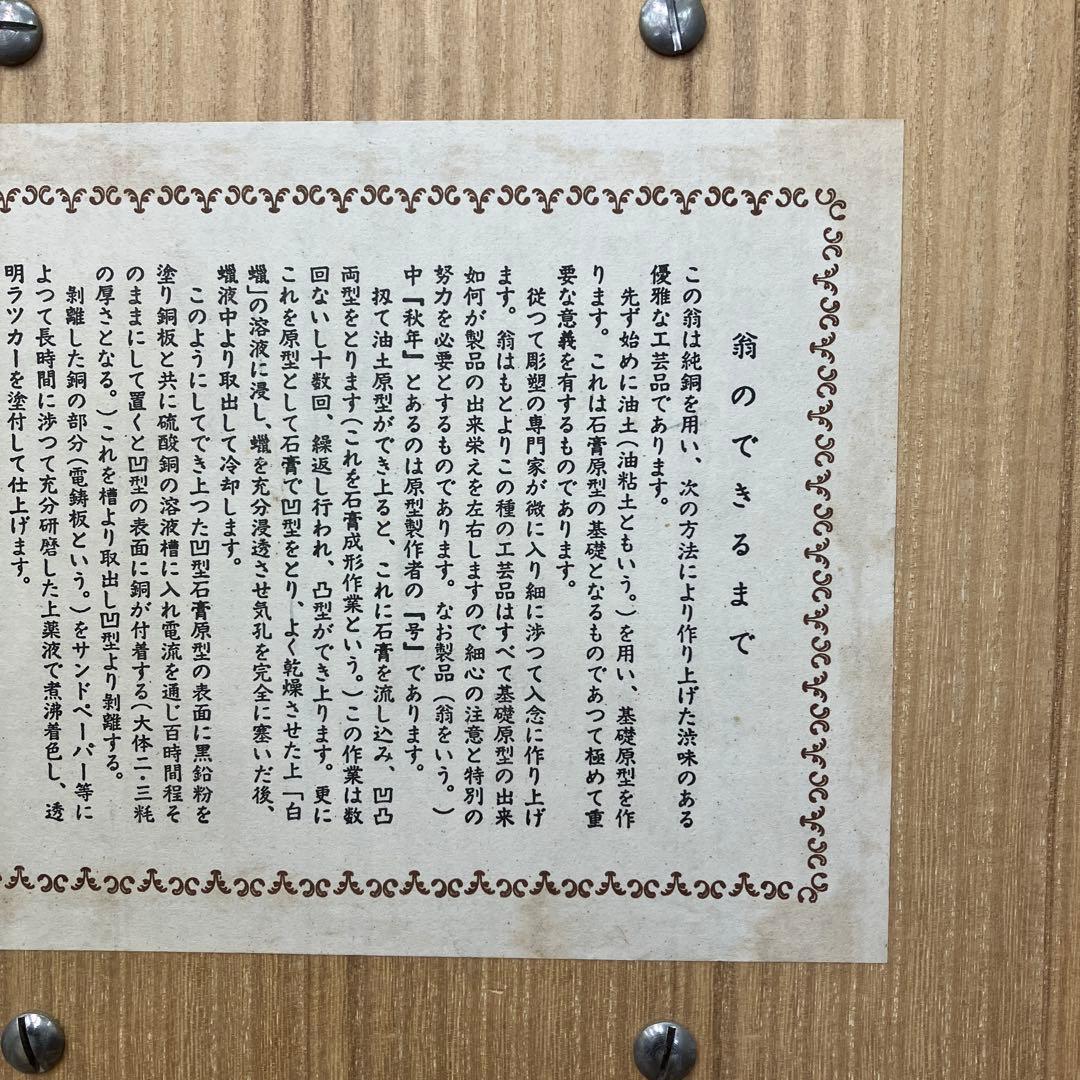 翁のできるまで
この翁は純銅を用い、次の方法により作り上げた渋味のある
優雅な工芸品であります。
先ず始めに油土（油粘土ともいう。）を用い、基礎原型を作
ります。これは石膏原型の基礎となるものであつて極めて重
要な意義を有するものであります。
従つて彫塑の専門家が微に入り細に渉つて入念に作り上げ
ます。翁はもとよりこの種の工芸品はすべて基礎原型の出来
如何が製品の出来栄えを左右しますので細心の注意と特別の
努力を必要とするものであります。なお製品（翁をいう。）
中『秋年』とあるのは原型製作者の『号』であります。
扨て油土原型ができ上ると、これに石膏を流し込み、凹凸
両型をとります（これを石膏成形作業という。）この作業は数
回ないし十数回、繰返し行われ、凸型ができ上ります。更に
これを原型として石膏で凹型をとり、よく乾燥させた上「白
蠟」の溶液に浸し、蠟を充分浸透させ気孔を完全に塞いだ後、
蠟液中より取出して冷却します。
このようにしてでき上つた凹型石膏原型の表面に黒鉛粉を
塗り銅板と共に硫酸銅の溶液槽に入れ電流を通じ百時間程そ
のままにして置くと凹型の表面に銅が付着する（大体二・三粍
の厚さとなる。）これを槽より取出し凹型より剥離する。
剥離した銅の部分（電鋳板という。）をサンドペーパー等に
よつて長時間に渉つて充分研磨した上薬液で煮沸着色し、透
明ラツカーを塗付して仕上げます。